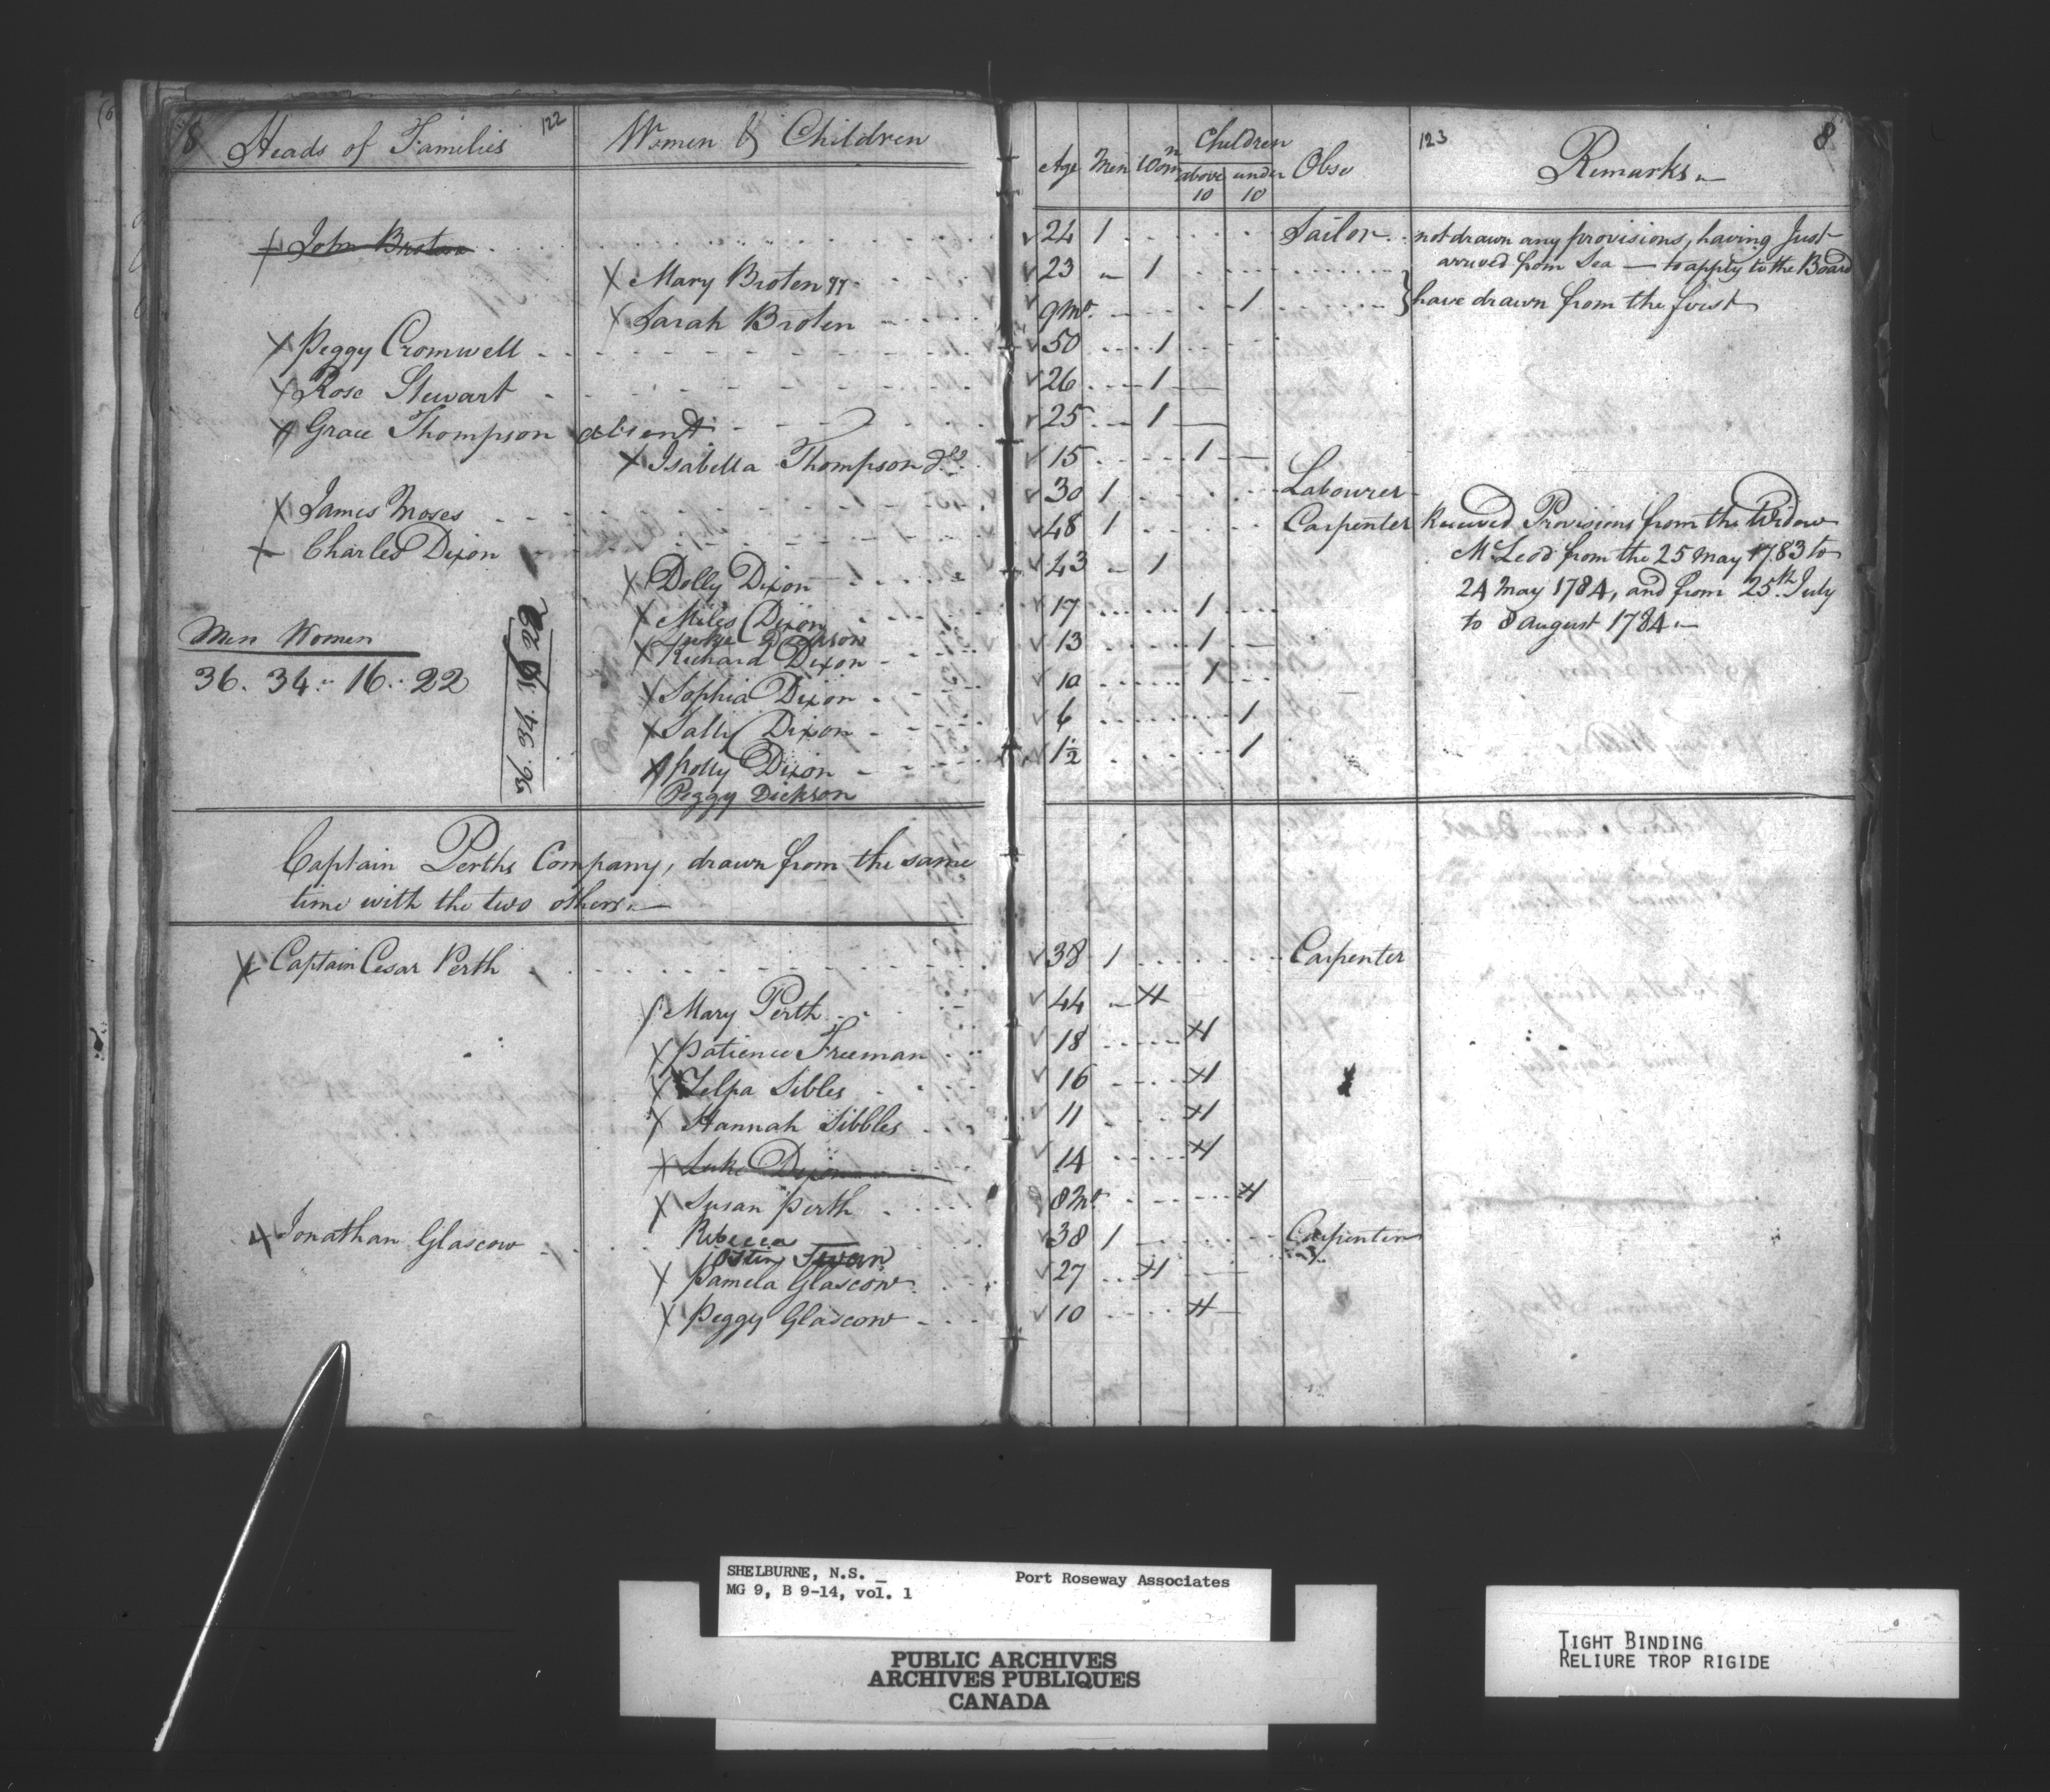 8 Heads of Families 122 Women & Children
Age Men Womn Children above 10 under 10 Obse 123 Remarks 8
John Broten 24 1 Sailor not drawn any provisions, having Just
arrived from Sea — to apply to the Board
Mary Broten 23 1
Sarah Broten 9 Mo. 1 have drawn from the first
Peggy Cromwell 50 1
Rose Stewart 26 1
Grace Thompson absent 25 1
Isabella Thompson do. 15 1
James Moses 30 1 Labourer
Charles Dixon 48 1 Carpenter Received Provisions from the Widow
McLeod from the 25 May 1783 to
24 May 1784, and from 25th July
to 8 August 1784
Dolly Dixon 43 1
Miles Dixon 17 1
Luke Dickson
Richard Dixon 13 1
Sophia Dixon 10 1
Sally Dixon 6 1
Polly Dixon 1½ 1
Peggy Dickson
Men Women
36. 34. 16. 22
36. 34. 16 22
Captain Perths Company, drawn from the same
time with the two others
Captain Cesar Perth 38 1 Carpenter
Mary Perth 44 1
Patience Freeman 18 1
Zelpa Sibles 16 1
Hannah Sibbles 11 1
Luke Dixon 14 1
Susan Perth 8 Mo. 1
Jonathan Glascow 38 1 Carpenter
Rebecca
Swan
Pamela Glascow 27 1
Peggy Glascow 10 1
SHELBURNE, N.S. Port Roseway Associates
MG 9, B 9-14, vol. 1
PUBLIC ARCHIVES
ARCHIVES PUBLIQUES
CANADA
TIGHT BINDING
RELIURE TROP RIGIDE